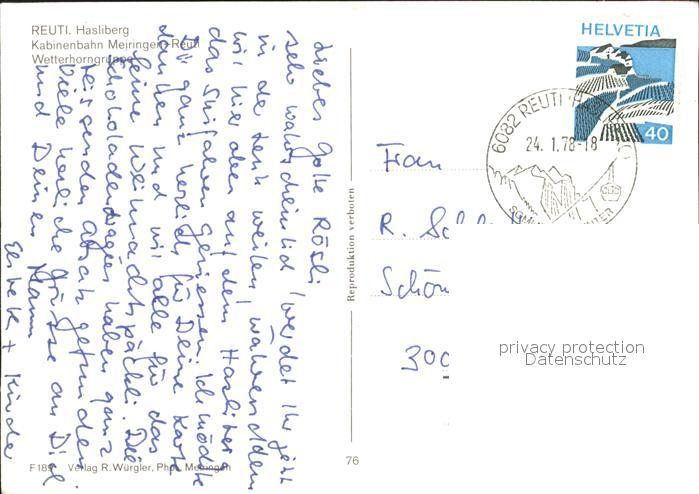 REUTI. Hasliberg
Kabinenbahn Meiringen-Reuti
Wetterhorngruppe
Liebes Gotte Rösli
sehr wahrscheinlich werdet Ihr jetzt
in der Lenk weilen, währenddem
wir hier oben auf dem Hasliberg
das Skifahren geniessen. Ich möchte
Dir ganz herzlich für Deine Karte
danken und wir alle für das
feine Weihnachtspäckli. Die
Schokoladen haben ganz
reissenden Absatz gefunden
Viele herzliche Grüsse an Dich
und Deinen Mann
Elsbeth + Kinder
F 189 Verlag R. Würgler, Phot. Meiringen
76
Reproduktion verboten
HELVETIA
40
6082 REUTI
24. 1.78-18
Frau
R.
Schön
300
privacy protection
Datenschutz